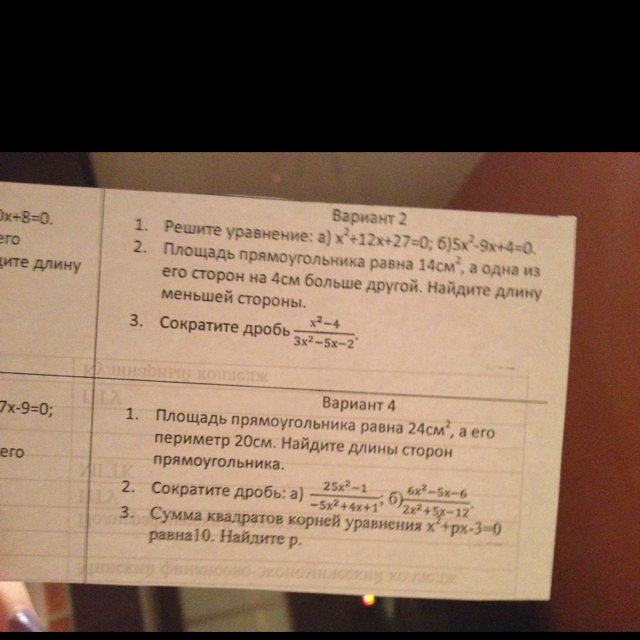 0x+8=0.
его
дите длину
Вариант 2
1. Решите уравнение: а) x²+12x+27=0; б)5x²-9x+4=0.
2. Площадь прямоугольника равна 14см², а одна из
его сторон на 4см больше другой. Найдите длину
меньшей стороны.
3. Сократите дробь (x²−4)/(3x²−5x−2).
7x-9=0;
его
Вариант 4
1. Площадь прямоугольника равна 24см², а его
периметр 20см. Найдите длины сторон
прямоугольника.
2. Сократите дробь: а) (25x²−1)/(−5x²+4x+1); б)(6x²−5x−6)/(2x²+5x−12).
3. Сумма квадратов корней уравнения x²+px-3=0
равна10. Найдите p.